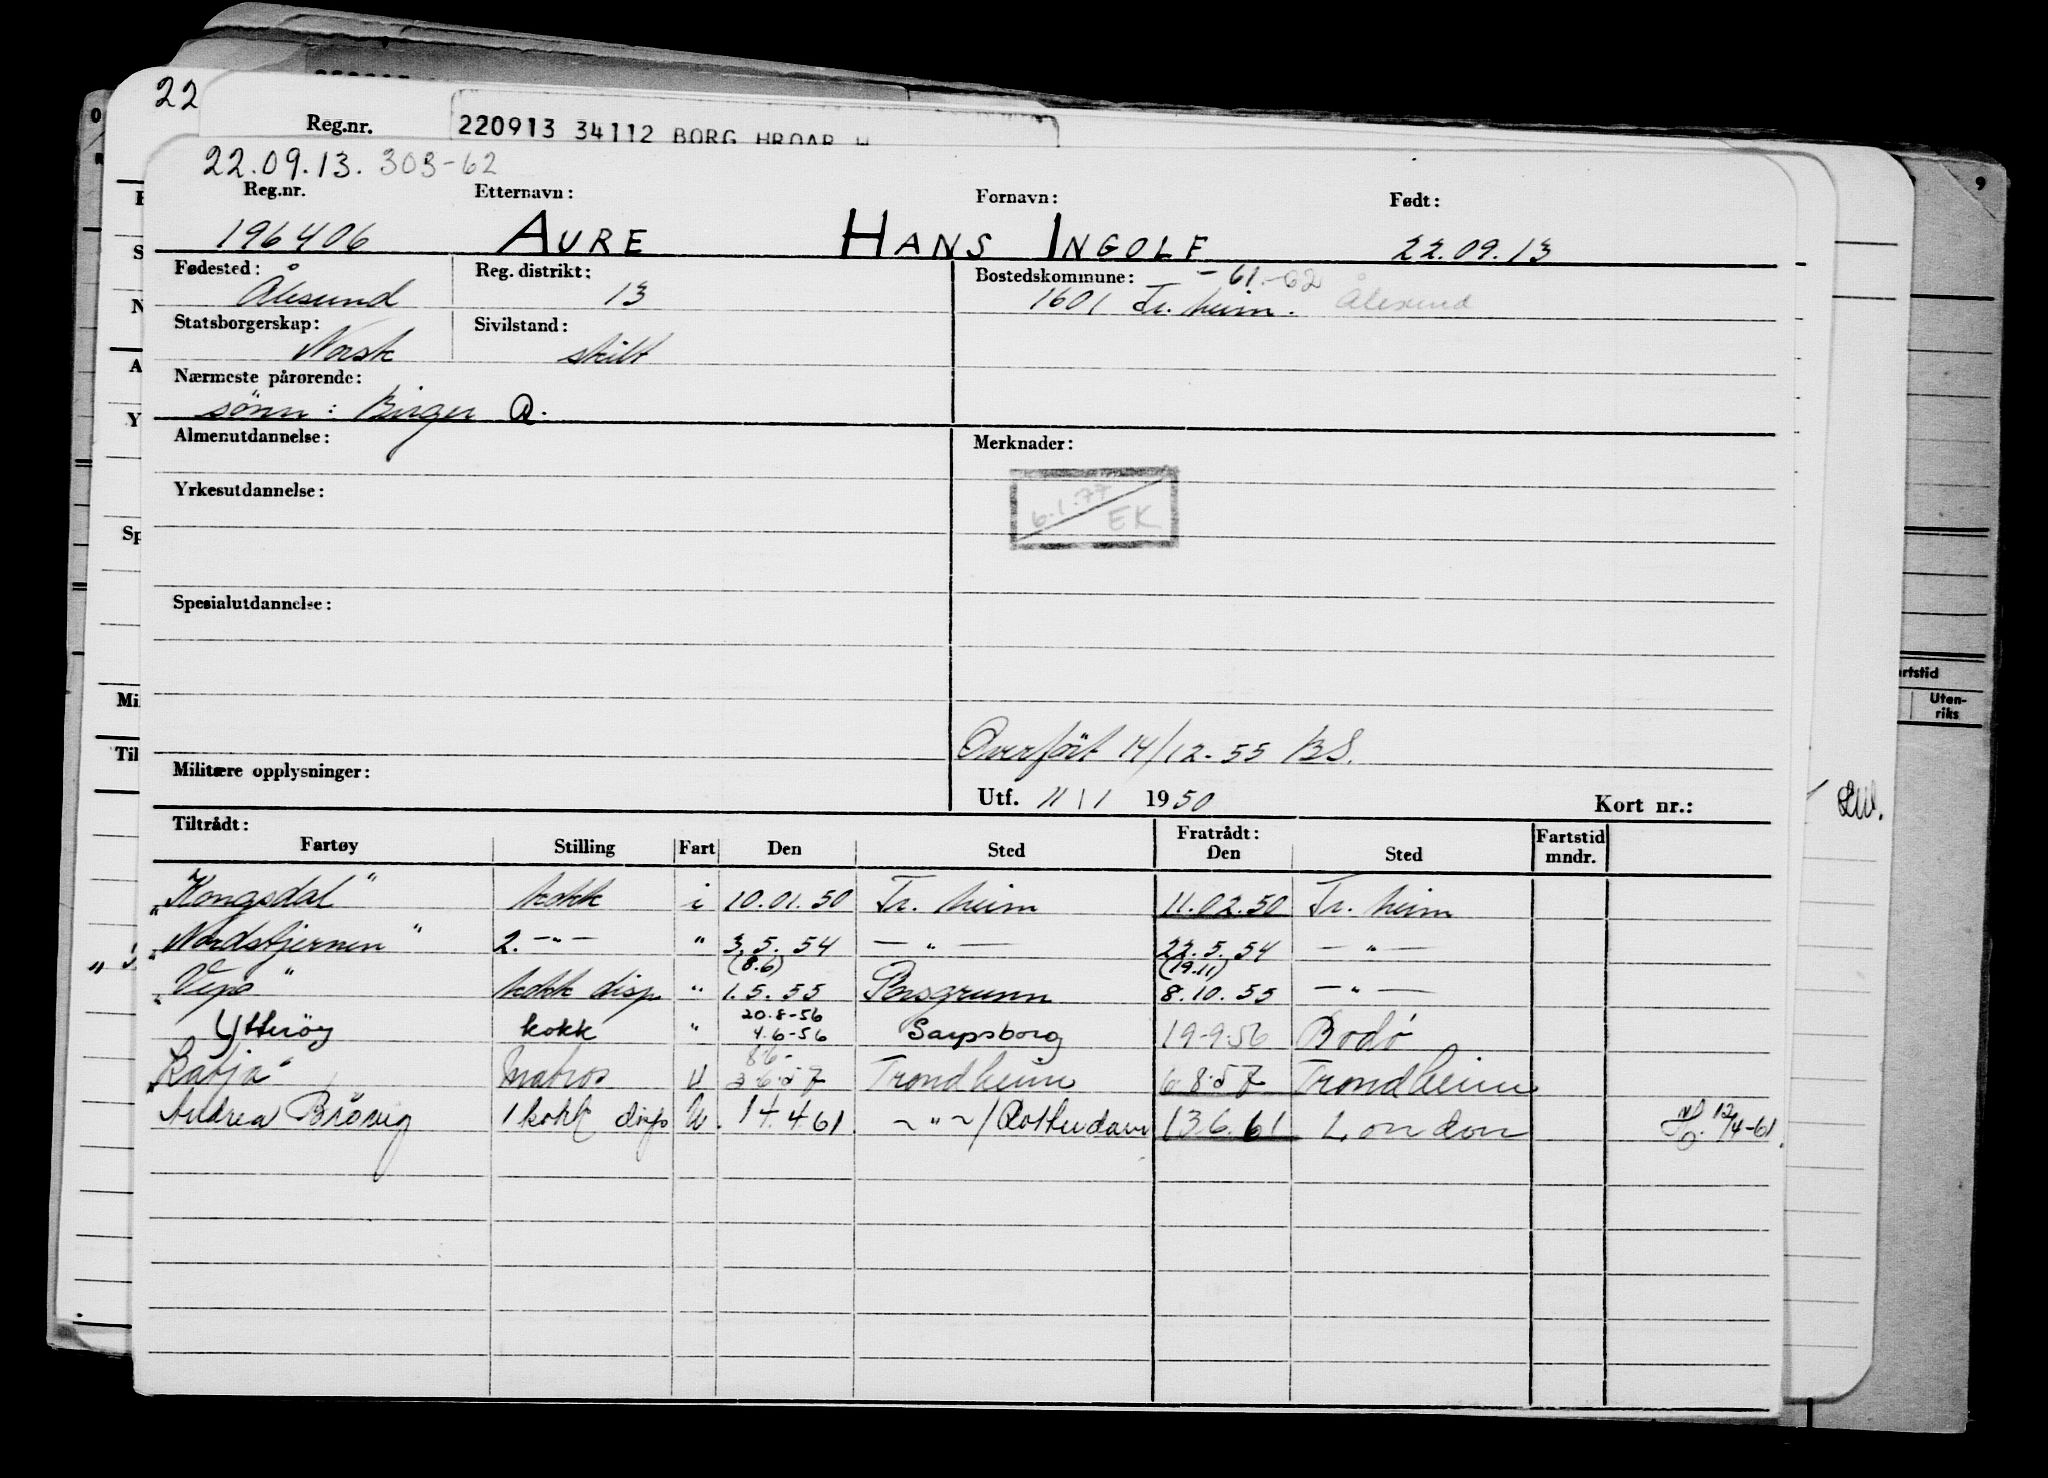 22
Reg.nr. 220913 34112 BORG HROAR W
22.09.13. 303-62
Reg.nr. Etternavn: Fornavn: Født:
196406 AURE HANS INGOLF 22.09.13
Fødested: Reg. distrikt: Bostedskommune: -61.-62
Ålesund 13 1601 Tr. heim. Ålesund
Statsborgerskap: Sivilstand:
Norsk skilt
Nærmeste pårørende:
sønn: Birger A.
Almenutdannelse: Merknader:
Yrkesutdannelse: 6.1.77 EK
Spesialutdannelse:
Overført 14/12-55 BS.
Militære opplysninger:
Utf. 11/1 1950 Kort nr.:
Tiltrådt: Fratrådt:
Fartøy Stilling Fart Den Sted Den Sted Fartstid mndr.
"Kongsdal" kokk i 10.01.50 Tr. heim 11.02.50 Tr. heim
"Nordstjernen" 2. -"- " 3.5.54 -"- 22.5.54 -"-
(8.6) (19.11)
"Vepo" kokk disp " 1.5.55 Porsgrunn 8.10.55 -"-
20.8-56
Ytterøy kokk " 4.6-56 Sarpsborg 19-9.56 Bodø
8.6-
"Katja" Matros U 3.6.57 Trondheim 6.8.57 Trondheim
Andrea Brøvig 1 kokk disp U. 14.4.61 ~"~/Rotterdam 13.6.61 London 12/4-61.
rtstid
Uten-
riks
9